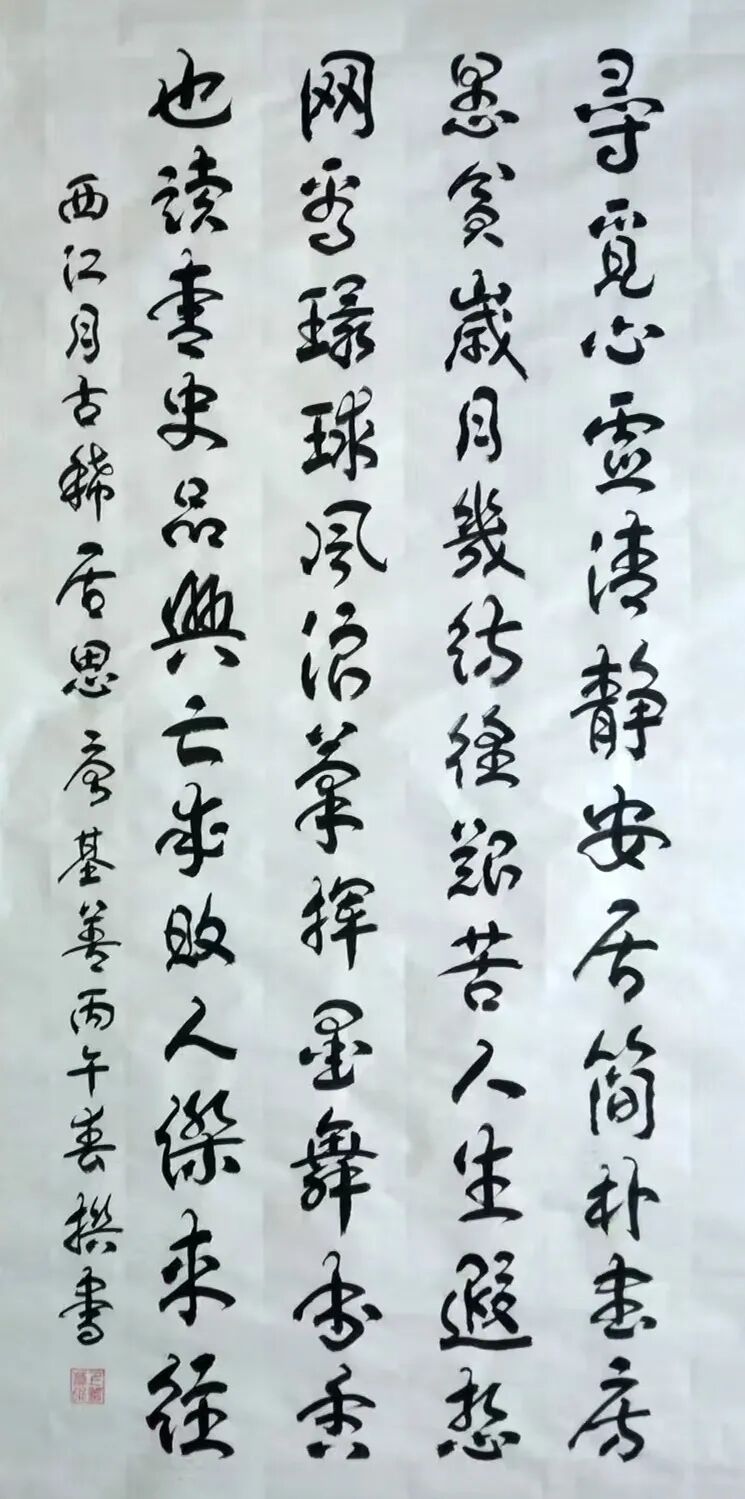 尋覓心靈清靜安居簡朴书房
愚貧歲月幾彷徨艱苦人生遐想
网看環球風浪筆揮墨舞书香
也讀青史品興亡成敗人傑來往
西江月古稀居思 唐基善丙午春撰書